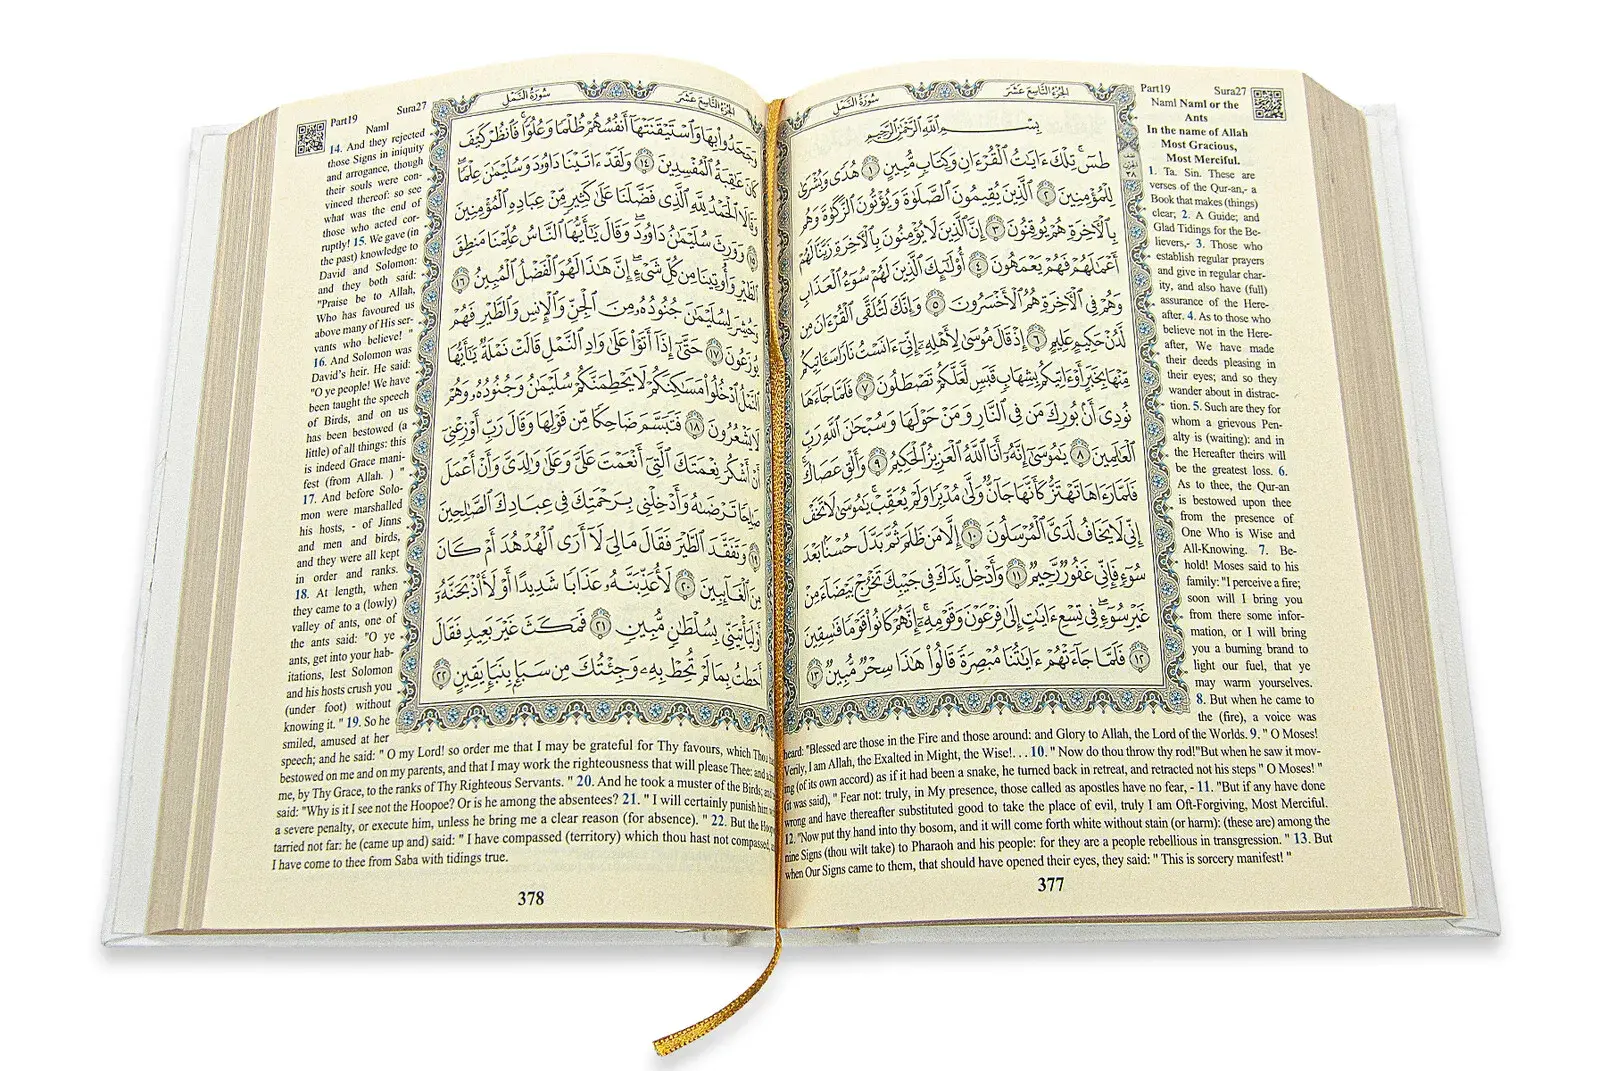 الجُزْءُ التَّاسِعَ عَشَرَ سُورَةُ النَّمْلِ
بِسْمِ اللَّهِ الرَّحْمَٰنِ الرَّحِيمِ
طسٓ تِلْكَ ءَايَٰتُ الْقُرْءَانِ وَكِتَابٍ مُّبِينٍ ١ هُدًى وَبُشْرَىٰ
لِلْمُؤْمِنِينَ ٢ الَّذِينَ يُقِيمُونَ الصَّلَوٰةَ وَيُؤْتُونَ الزَّكَوٰةَ وَهُم
بِالْآخِرَةِ هُمْ يُوقِنُونَ ٣ إِنَّ الَّذِينَ لَا يُؤْمِنُونَ بِالْآخِرَةِ زَيَّنَّا لَهُمْ
أَعْمَٰلَهُمْ فَهُمْ يَعْمَهُونَ ٤ أُوْلَٰٓئِكَ الَّذِينَ لَهُمْ سُوٓءُ الْعَذَابِ
وَهُمْ فِي الْآخِرَةِ هُمُ الْأَخْسَرُونَ ٥ وَإِنَّكَ لَتُلَقَّى الْقُرْءَانَ مِن
لَّدُنْ حَكِيمٍ عَلِيمٍ ٦ إِذْ قَالَ مُوسَىٰ لِأَهْلِهِۦٓ إِنِّيٓ ءَانَسْتُ نَارًا سَـَٔاتِيكُم
مِّنْهَا بِخَبَرٍ أَوْ ءَاتِيكُم بِشِهَابٍ قَبَسٍ لَّعَلَّكُمْ تَصْطَلُونَ ٧ فَلَمَّا جَآءَهَا
نُودِيَ أَنۢ بُورِكَ مَن فِي النَّارِ وَمَنْ حَوْلَهَا وَسُبْحَٰنَ اللَّهِ رَبِّ
الْعَٰلَمِينَ ٨ يَٰمُوسَىٰٓ إِنَّهُۥٓ أَنَا اللَّهُ الْعَزِيزُ الْحَكِيمُ ٩ وَأَلْقِ عَصَاكَ
فَلَمَّا رَءَاهَا تَهْتَزُّ كَأَنَّهَا جَآنٌّ وَلَّىٰ مُدْبِرًا وَلَمْ يُعَقِّبْ يَٰمُوسَىٰ لَا تَخَفْ
إِنِّي لَا يَخَافُ لَدَيَّ الْمُرْسَلُونَ ١٠ إِلَّا مَن ظَلَمَ ثُمَّ بَدَّلَ حُسْنًۢا بَعْدَ
سُوٓءٍ فَإِنِّي غَفُورٌ رَّحِيمٌ ١١ وَأَدْخِلْ يَدَكَ فِي جَيْبِكَ تَخْرُجْ بَيْضَآءَ مِنْ
غَيْرِ سُوٓءٍ فِي تِسْعِ ءَايَٰتٍ إِلَىٰ فِرْعَوْنَ وَقَوْمِهِۦٓ إِنَّهُمْ كَانُوا۟ قَوْمًا فَٰسِقِينَ
١٢ فَلَمَّا جَآءَتْهُمْ ءَايَٰتُنَا مُبْصِرَةً قَالُوا۟ هَٰذَا سِحْرٌ مُّبِينٌ ١٣
Part19 Sura27
Naml Naml or the
Ants
In the name of Allah
Most Gracious,
Most Merciful.
1. Ta. Sin. These are
verses of the Qur-an,- a
Book that makes (things)
clear; 2. A Guide; and
Glad Tidings for the Be-
lievers,- 3. Those who
establish regular prayers
and give in regular char-
ity, and also have (full)
assurance of the Here-
after. 4. As to those who
believe not in the Here-
after, We have made
their deeds pleasing in
their eyes; and so they
wander about in distrac-
tion. 5. Such are they for
whom a grievous Pen-
alty is (waiting): and in
the Hereafter theirs will
be the greatest loss. 6.
As to thee, the Qur-an
is bestowed upon thee
from the presence of
One Who is Wise and
All-Knowing. 7. Be-
hold! Moses said to his
family: "I perceive a fire;
soon will I bring you
from there some infor-
mation, or I will bring
you a burning brand to
light our fuel, that ye
may warm yourselves.
8. But when he came to
the (fire), a voice was
heard: "Blessed are those in the Fire and those around: and Glory to Allah, the Lord of the Worlds. 9. " O Moses!
Verily, I am Allah, the Exalted in Might, the Wise!. . . 10. " Now do thou throw thy rod!"But when he saw it mov-
ing (of its own accord) as if it had been a snake, he turned back in retreat, and retracted not his steps " O Moses! "
(it was said), " Fear not: truly, in My presence, those called as apostles have no fear, - 11. "But if any have done
wrong and have thereafter substituted good to take the place of evil, truly I am Oft-Forgiving, Most Merciful.
12. "Now put thy hand into thy bosom, and it will come forth white without stain (or harm): (these are) among the
nine Signs (thou wilt take) to Pharaoh and his people: for they are a people rebellious in transgression. " 13. But
when Our Signs came to them, that should have opened their eyes, they said: " This is sorcery manifest! "
377
الجُزْءُ التَّاسِعَ عَشَرَ سُورَةُ النَّمْلِ
وَجَحَدُوا۟ بِهَا وَاسْتَيْقَنَتْهَآ أَنفُسُهُمْ ظُلْمًا وَعُلُوًّا فَانظُرْ كَيْفَ
كَانَ عَٰقِبَةُ الْمُفْسِدِينَ ١٤ وَلَقَدْ ءَاتَيْنَا دَاوُۥدَ وَسُلَيْمَٰنَ عِلْمًا
وَقَالَا الْحَمْدُ لِلَّهِ الَّذِي فَضَّلَنَا عَلَىٰ كَثِيرٍ مِّنْ عِبَادِهِ الْمُؤْمِنِينَ
١٥ وَوَرِثَ سُلَيْمَٰنُ دَاوُۥدَ وَقَالَ يَٰٓأَيُّهَا النَّاسُ عُلِّمْنَا مَنطِقَ
الطَّيْرِ وَأُوتِينَا مِن كُلِّ شَيْءٍ إِنَّ هَٰذَا لَهُوَ الْفَضْلُ الْمُبِينُ ١٦
وَحُشِرَ لِسُلَيْمَٰنَ جُنُودُهُۥ مِنَ الْجِنِّ وَالْإِنسِ وَالطَّيْرِ فَهُمْ
يُوزَعُونَ ١٧ حَتَّىٰٓ إِذَآ أَتَوْا۟ عَلَىٰ وَادِ النَّمْلِ قَالَتْ نَمْلَةٌ يَٰٓأَيُّهَا
النَّمْلُ ادْخُلُوا۟ مَسَٰكِنَكُمْ لَا يَحْطِمَنَّكُمْ سُلَيْمَٰنُ وَجُنُودُهُۥ وَهُمْ
لَا يَشْعُرُونَ ١٨ فَتَبَسَّمَ ضَاحِكًا مِّن قَوْلِهَا وَقَالَ رَبِّ أَوْزِعْنِيٓ
أَنْ أَشْكُرَ نِعْمَتَكَ الَّتِيٓ أَنْعَمْتَ عَلَيَّ وَعَلَىٰ وَٰلِدَيَّ وَأَنْ أَعْمَلَ
صَٰلِحًا تَرْضَىٰهُ وَأَدْخِلْنِي بِرَحْمَتِكَ فِي عِبَادِكَ الصَّٰلِحِينَ
١٩ وَتَفَقَّدَ الطَّيْرَ فَقَالَ مَا لِيَ لَآ أَرَى الْهُدْهُدَ أَمْ كَانَ
مِنَ الْغَآئِبِينَ ٢٠ لَأُعَذِّبَنَّهُۥ عَذَابًا شَدِيدًا أَوْ لَأَا۟ذْبَحَنَّهُۥٓ
أَوْ لَيَأْتِيَنِّي بِسُلْطَٰنٍ مُّبِينٍ ٢١ فَمَكَثَ غَيْرَ بَعِيدٍ فَقَالَ
أَحَطتُ بِمَا لَمْ تُحِطْ بِهِۦ وَجِئْتُكَ مِن سَبَإٍۭ بِنَبَإٍ يَقِينٍ ٢٢
Part19 Sura27
Naml
14. And they rejected
those Signs in iniquity
and arrogance, though
their souls were con-
vinced thereof: so see
what was the end of
those who acted cor-
ruptly! 15. We gave (in
the past) knowledge to
David and Solomon:
and they both said:
"Praise be to Allah,
Who has favoured us
above many of His ser-
vants who believe! "
16. And Solomon was
David's heir. He said:
"O ye people! We have
been taught the speech
of Birds, and on us
has been bestowed (a
little) of all things: this
is indeed Grace mani-
fest (from Allah. ) "
17. And before Solo-
mon were marshalled
his hosts, - of Jinns
and men and birds,
and they were all kept
in order and ranks.
18. At length, when
they came to a (lowly)
valley of ants, one of
the ants said: "O ye
ants, get into your hab-
itations, lest Solomon
and his hosts crush you
(under foot) without
knowing it. " 19. So he
smiled, amused at her
speech; and he said: " O my Lord! so order me that I may be grateful for Thy favours, which Thou
bestowed on me and on my parents, and that I may work the righteousness that will please Thee: and
me, by Thy Grace, to the ranks of Thy Righteous Servants. " 20. And he took a muster of the Birds; and
said: "Why is it I see not the Hoopoe? Or is he among the absentees? 21. " I will certainly punish him
a severe penalty, or execute him, unless he bring me a clear reason (for absence). " 22. But the
tarried not far: he (came up and) said: " I have compassed (territory) which thou hast not compassed,
I have come to thee from Saba with tidings true.
378